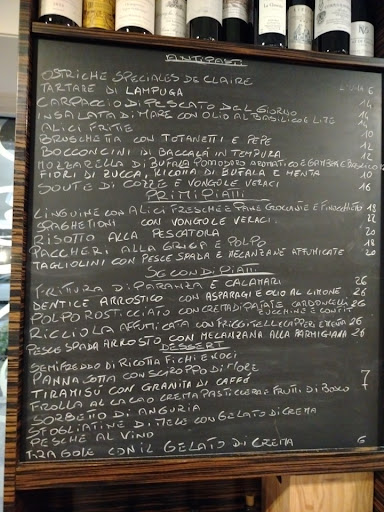 ANTIPASTI
OSTRICHE SPECIALES DE CLAIRE L'UNA 6
TARTARE DI LAMPUGA 14
CARPACCIO DI PESCATO DEL GIORNO 14
INSALATA DI MARE CON OLIO AL BASILICO E LIME 14
ALICI FRITTE
BRUSCHETTA CON TOTANETTI E PEPE 10
BOCCONCINI DI BACCALÀ IN TEMPURA 12
MOZZARELLA DI BUFALA POMODORO AROMATICO E GAMBERI E BASILICO 12
FIORI DI ZUCCA, RICOTTA DI BUFALA E MENTA 10
SOUTE DI COZZE E VONGOLE VERACI 16
PRIMI PIATTI
LINGUINE CON ALICI FRESCHE E PANE CROCCANTE E FINOCCHIETTO 18
SPAGHETTONI CON VONGOLE VERACI 22
RISOTTO ALLA PESCATORA 20
PACCHERI ALLA GRICIA E POLPO 18
TAGLIOLINI CON PESCE SPADA E MELANZANE AFFUMICATE 20
SECONDI PIATTI
FRITTURA DI PARANZA E CALAMARI 26
DENTICE ARROSTICO CON ASPARAGI E OLIO AL LIMONE 26
POLPO ROSTICCIATO CON CREMA DI PATATE CARDONCELLI 26
ZUCCHINE E CONFIT
RICCIOLA AFFUMICATA CON FRIGGITELLI E CAPPERI E MENTA 26
PESCE SPADA ARROSTO CON MELANZANA ALLA PARMIGIANA 26
DESSERT
SEMIFREDDO DI RICOTTA FICHI E NOCI
PANNA COTTA CON SCIROPPO DI MORE
TIRAMISÙ CON GRANITA DI CAFFÉ 7
FROLLA AL CACAO CREMA PASTICCERA E FRUTTI DI BOSCO
SORBETTO DI ANGURIA
SFOGLIATINE DI MELE CON GELATO DI CREMA
PESCHE AL VINO
FRAGOLE CON IL GELATO DI CREMA 6